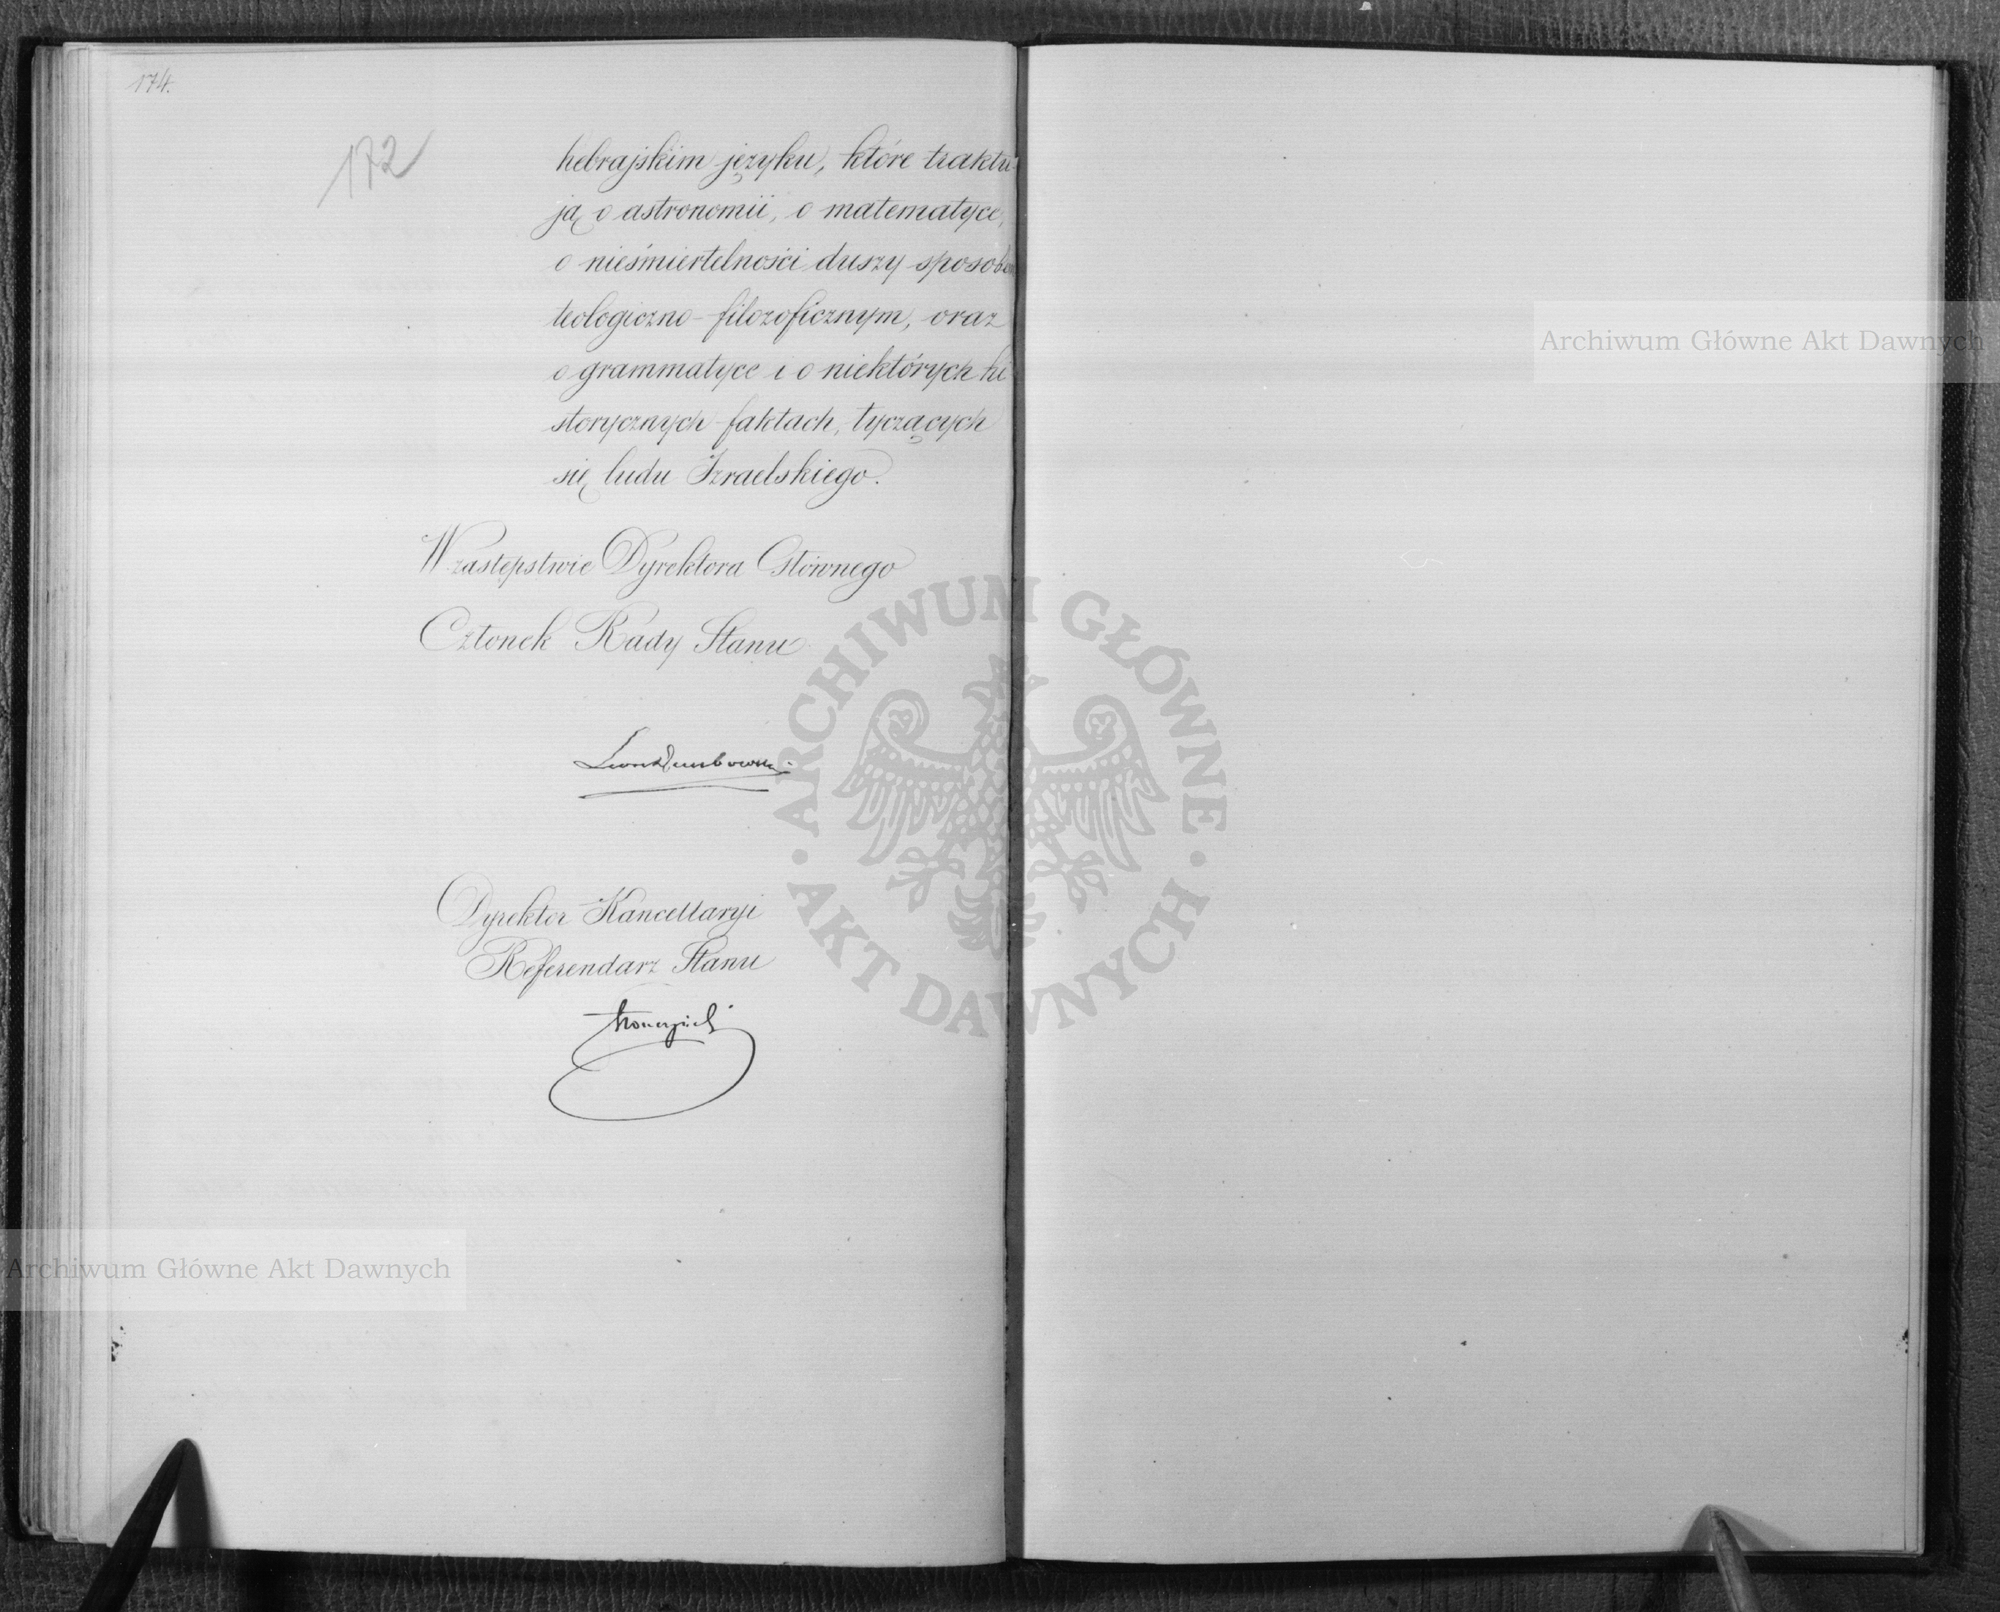 174.
172
hebrajskim języku, które traktu
ją o astronomii, o matematyce,
o nieśmiertelności duszy sposobem
teologiczno-filozoficznym, oraz
o grammatyce i o niektórych hi
storycznych faktach, tyczących
się ludu Izraelskiego.
W zastępstwie Dyrektora Głównego
Członek Rady Stanu
Leon Dembowski
Dyrektor Kancellaryi
Referendarz Stanu
ARCHIWUM GŁÓWNE
AKT DAWNYCH
Archiwum Główne Akt Dawnych
Archiwum Główne Akt Dawnych